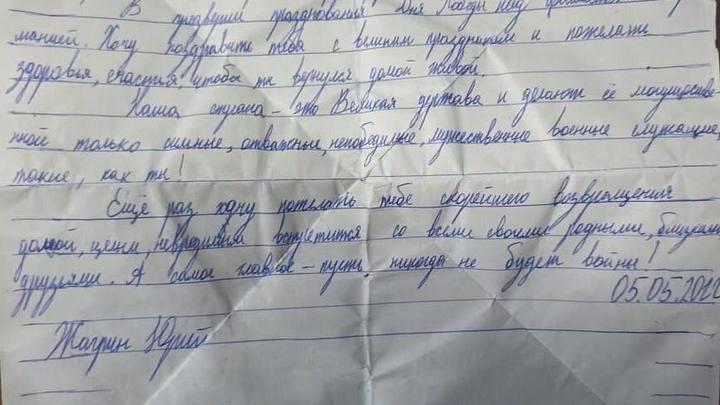 В празднования Дня Победы
манией. Хочу поздравить тебя с великим праздником и пожелать
здоровья, счастья, чтобы ты вернулся домой живой.
Наша страна - это Великая держава и делают её могуществе-
нной только сильные, отважные, непобедимые, мужественные военные служащие,
такие, как ты!
Ещё раз хочу пожелать тебе скорейшего возвращения
домой, целым, невредимым встретится со всеми своими родными, близкими
друзьями. А самое главное - пусть никогда не будет войны!
05.05.2022
Юрий